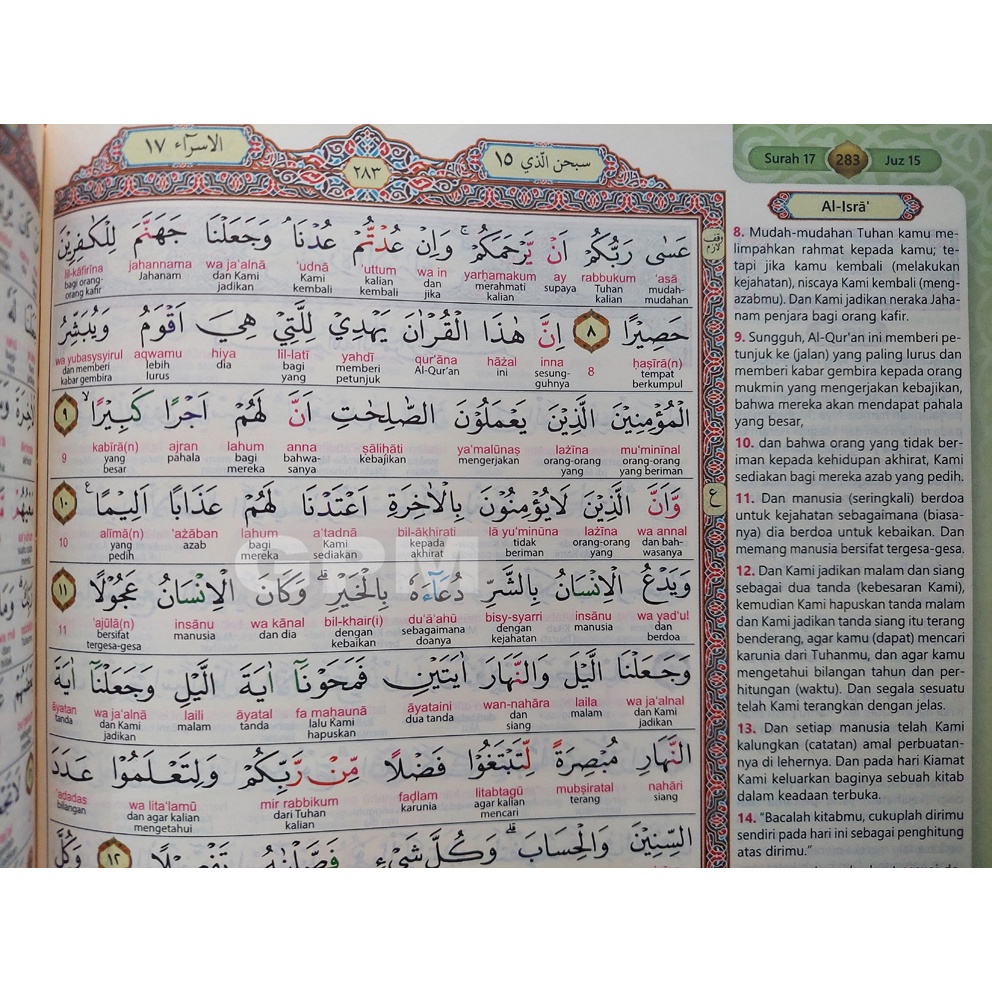 الاسرآء ١٧
٢٨٣
سبحن الّذي ١٥
عَسٰى رَبُّكُمْ اَنْ يَّرْحَمَكُمْۚ وَاِنْ عُدْتُّمْ عُدْنَاۘ وَجَعَلْنَا جَهَنَّمَ لِلْكٰفِرِيْنَ
'asā rabbukum ay yarḥamakum wa in 'uttum 'udnā wa ja'alnā jahannama lil-kāfirīna
mudah-mudahan Tuhan kalian supaya merahmati kalian dan jika kalian kembali Kami kembali dan Kami jadikan Jahanam bagi orang-orang kafir
وقف لازم
حَصِيْرًا ٨ اِنَّ هٰذَا الْقُرْاٰنَ يَهْدِيْ لِلَّتِيْ هِيَ اَقْوَمُ وَيُبَشِّرُ
ḥaṣīrā(n) 8 inna hāżal qur'āna yahdī lil-latī hiya aqwamu wa yubasysyirul
tempat berkumpul sesungguhnya ini Al-Qur'an memberi petunjuk bagi yang dia lebih lurus dan memberi kabar gembira
الْمُؤْمِنِيْنَ الَّذِيْنَ يَعْمَلُوْنَ الصّٰلِحٰتِ اَنَّ لَهُمْ اَجْرًا كَبِيْرًاۙ ٩
mu'minīnal lażīna ya'malūnaṣ ṣāliḥāti anna lahum ajran kabīrā(n) 9
orang-orang yang beriman orang-orang yang mengerjakan kebajikan bahwasanya bagi mereka pahala yang besar
وَّاَنَّ الَّذِيْنَ لَايُؤْمِنُوْنَ بِالْاٰخِرَةِ اَعْتَدْنَا لَهُمْ عَذَابًا اَلِيْمًا ࣖ ١٠
ع
wa annal lażīna lā yu'minūna bil-ākhirati a'tadnā lahum 'ażāban alīmā(n) 10
dan bahwasanya orang-orang yang tidak beriman kepada akhirat Kami sediakan bagi mereka azab yang pedih
GPM
وَيَدْعُ الْاِنْسَانُ بِالشَّرِّ دُعَاۤءَهٗ بِالْخَيْرِۗ وَكَانَ الْاِنْسَانُ عَجُوْلًا ١١
wa yad'ul insānu bisy-syarri du'ā'ahū bil-khair(i) wa kānal insānu 'ajūlā(n) 11
dan berdoa manusia dengan kejahatan sebagaimana doanya dengan kebaikan dan dia manusia bersifat tergesa-gesa
وَجَعَلْنَا الَّيْلَ وَالنَّهَارَ اٰيَتَيْنِ فَمَحَوْنَآ اٰيَةَ الَّيْلِ وَجَعَلْنَآ اٰيَةَ
wa ja'alnal laila wan-nahāra āyataini fa mahaunā āyatal laili wa ja'alnā āyatan
dan Kami jadikan malam dan siang dua tanda lalu Kami hapuskan tanda malam dan Kami jadikan tanda
النَّهَارِ مُبْصِرَةً لِّتَبْتَغُوْا فَضْلًا مِّنْ رَّبِّكُمْ وَلِتَعْلَمُوْا عَدَدَ
nahāri mubṣiratal litabtagū faḍlam mir rabbikum wa lita'lamū 'adadas
siang terang agar kalian mencari karunia dari Tuhan kalian dan agar kalian mengetahui bilangan
السِّنِيْنَ وَالْحِسَابَۗ وَكُلَّ شَيْءٍ فَصَّلْنٰهُ تَفْصِيْلًا ١٢ وَكُلَّ
Surah 17
283
Juz 15
Al-Isrā'
8. Mudah-mudahan Tuhan kamu me-
limpahkan rahmat kepada kamu; te-
tapi jika kamu kembali (melakukan
kejahatan), niscaya Kami kembali (meng-
azabmu). Dan Kami jadikan neraka Jaha-
nam penjara bagi orang kafir.
9. Sungguh, Al-Qur'an ini memberi pe-
tunjuk ke (jalan) yang paling lurus dan
memberi kabar gembira kepada orang
mukmin yang mengerjakan kebajikan,
bahwa mereka akan mendapat pahala
yang besar,
10. dan bahwa orang yang tidak ber-
iman kepada kehidupan akhirat, Kami
sediakan bagi mereka azab yang pedih.
11. Dan manusia (seringkali) berdoa
untuk kejahatan sebagaimana (biasa-
nya) dia berdoa untuk kebaikan. Dan
memang manusia bersifat tergesa-gesa.
12. Dan Kami jadikan malam dan siang
sebagai dua tanda (kebesaran Kami),
kemudian Kami hapuskan tanda malam
dan Kami jadikan tanda siang itu terang
benderang, agar kamu (dapat) mencari
karunia dari Tuhanmu, dan agar kamu
mengetahui bilangan tahun dan per-
hitungan (waktu). Dan segala sesuatu
telah Kami terangkan dengan jelas.
13. Dan setiap manusia telah Kami
kalungkan (catatan) amal perbuatan-
nya di lehernya. Dan pada hari Kiamat
Kami keluarkan baginya sebuah kitab
dalam keadaan terbuka.
14. "Bacalah kitabmu, cukuplah dirimu
sendiri pada hari ini sebagai penghitung
atas dirimu."